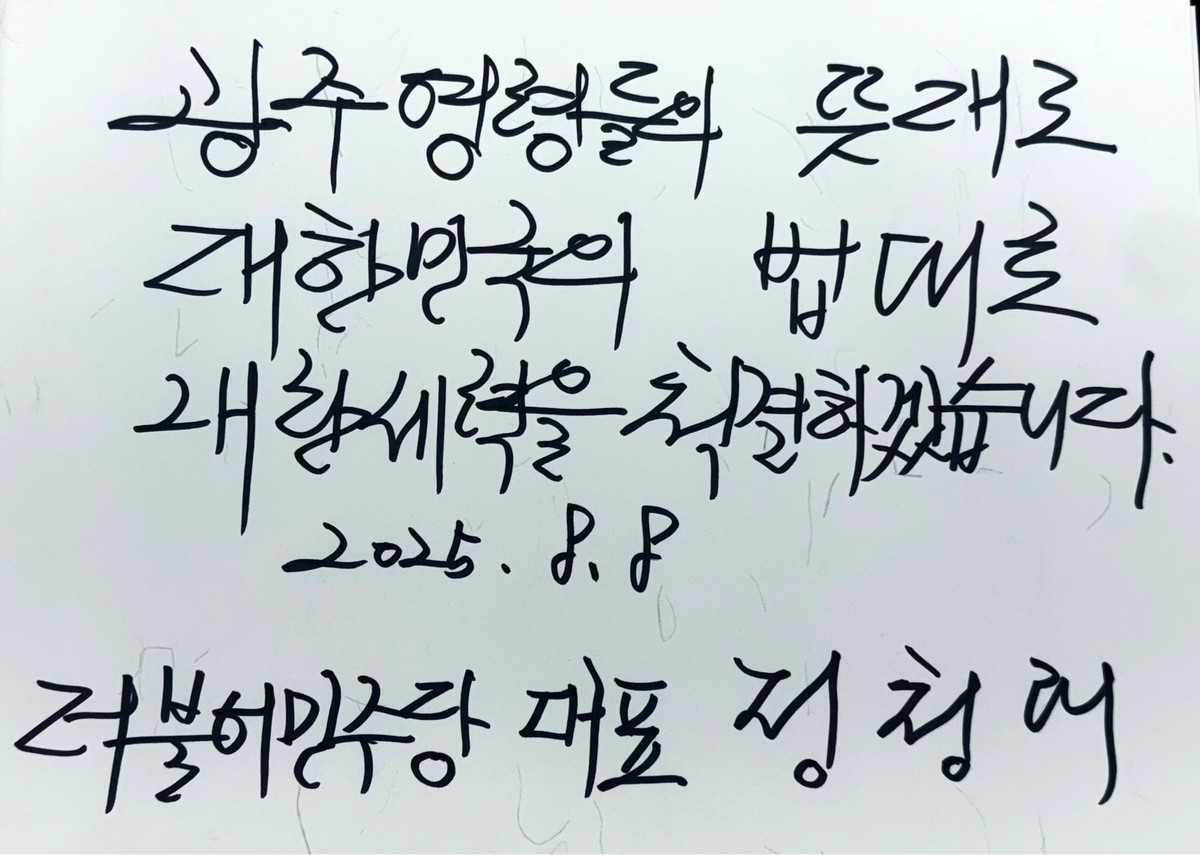 광주영령들의 뜻대로
대한민국의 법대로
내란세력을 척결하겠습니다.
2025. 8. 8
더불어민주당 대표 정청래